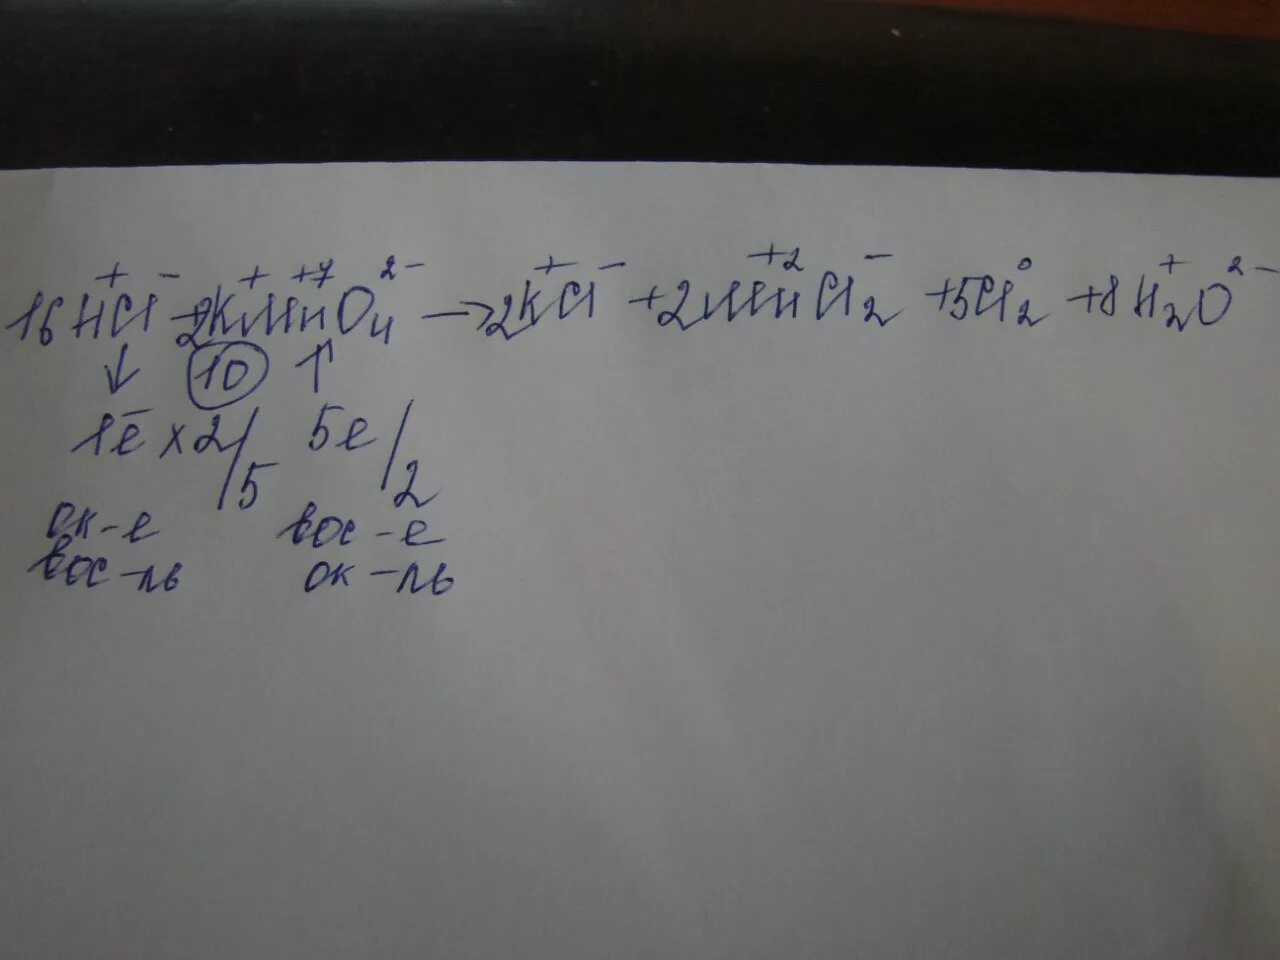 16H⁺Cl⁻ + 2K⁺Mn⁺⁷O₄²⁻ → 2K⁺Cl⁻ + 2Mn⁺²Cl₂⁻ + 5Cl₂⁰ + 8H₂⁺O²⁻
↓ 10 ↑
1e̅ x2/5 5e/2
ок-е вос-е
вос-ль ок-ль